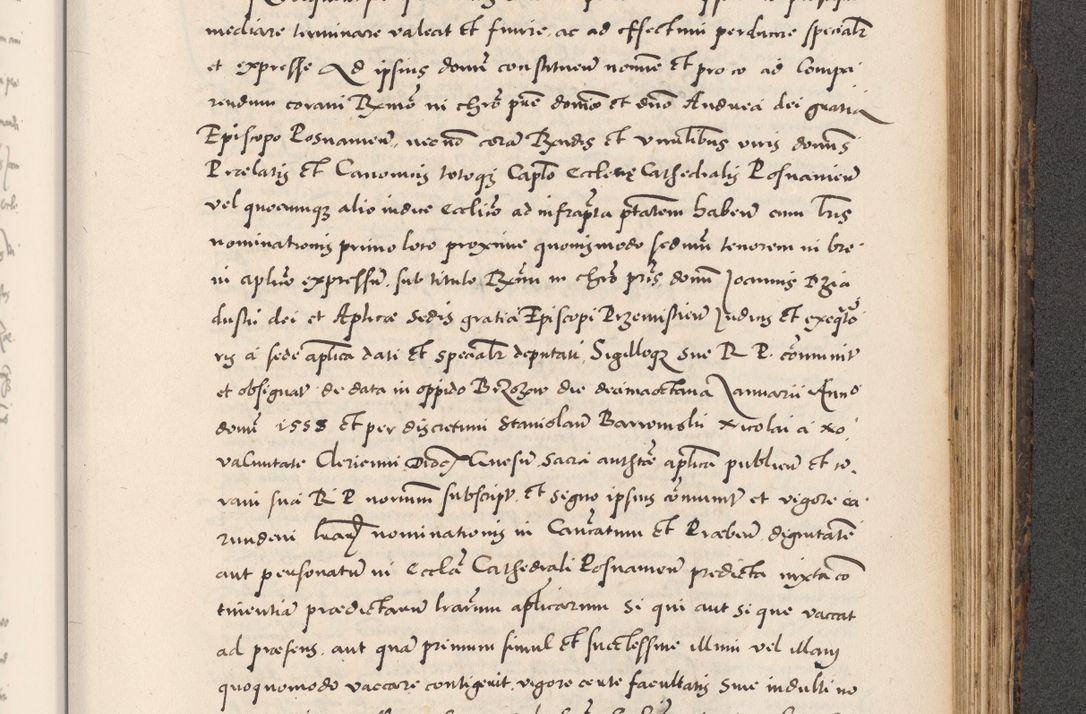 mediare terminare valeat et finire, ac ad effectum perducere specialr
et expresse Ad ipsius domi constituen nomine Et pro eo ad Compa
rendum coram Rxmo in chro pre domino et dno Andrea dei gratia
Episcopo Posnanien, nec no cora Rndis Et vnalibus viris domis
Prælatis Et Canonicis totoqz Caplo Eccleę Cathedralis Posnanien
vel quocunqz alio iudice Ecclico ad infrapta ptatem haben cum lris
nominationis primo loco proxime quousmodo sedmu tenorem in bre
ui aplico expressu, sub titulo Rxmi in chro pris domi Joannis Dzia
duski dei et Aplicæ Sedis gratia Episcopi Przemislien Judicis Et exeqto
ris a sede aplica dati Et specialr deputati, Sigilloqz sue R P. comunit
et obsignat de data in oppido Brzozow die decimaoctaua Januarii Anno
domi 1558 Et per discretum Stanislau Barwinski Nicolai a No
valuntate Clericum Diocef Gnesn, Sacra authte aplica publicu Et co
ram sua R P notarium subscript, Et Signo ipsius comunit et vigore ea
rundem lrarz nominationis in Canicatum Et Præben dignitate
aut personatu in Eccla Cathedrali Posnanien predicta iuxta co
tinentia prædictaru lrarum aplicarum Si qui aut Si que vaccat
ad præsens, aut qua primum simul Et succlessiue illum vel illam
quoquomodo vaccare contigerit, vigore certe facultatis Siue indulti no